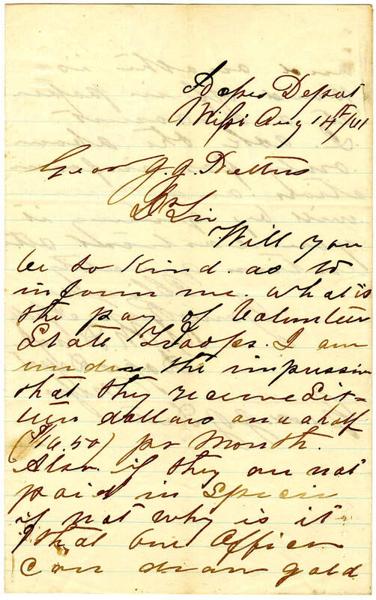 Popes Depot
Missi Aug 14th /61
Gov J. J. Pettus
Dr Sir
Will you
be so kind as to
inform me what is
the pay of Volunteer
State Troops. I am
under the impression
that they receive Six-
teen dollars and a half
($16.50) pr Month.
Also if they are not
paid in Specie
if not why is it
that one Officer
can draw gold